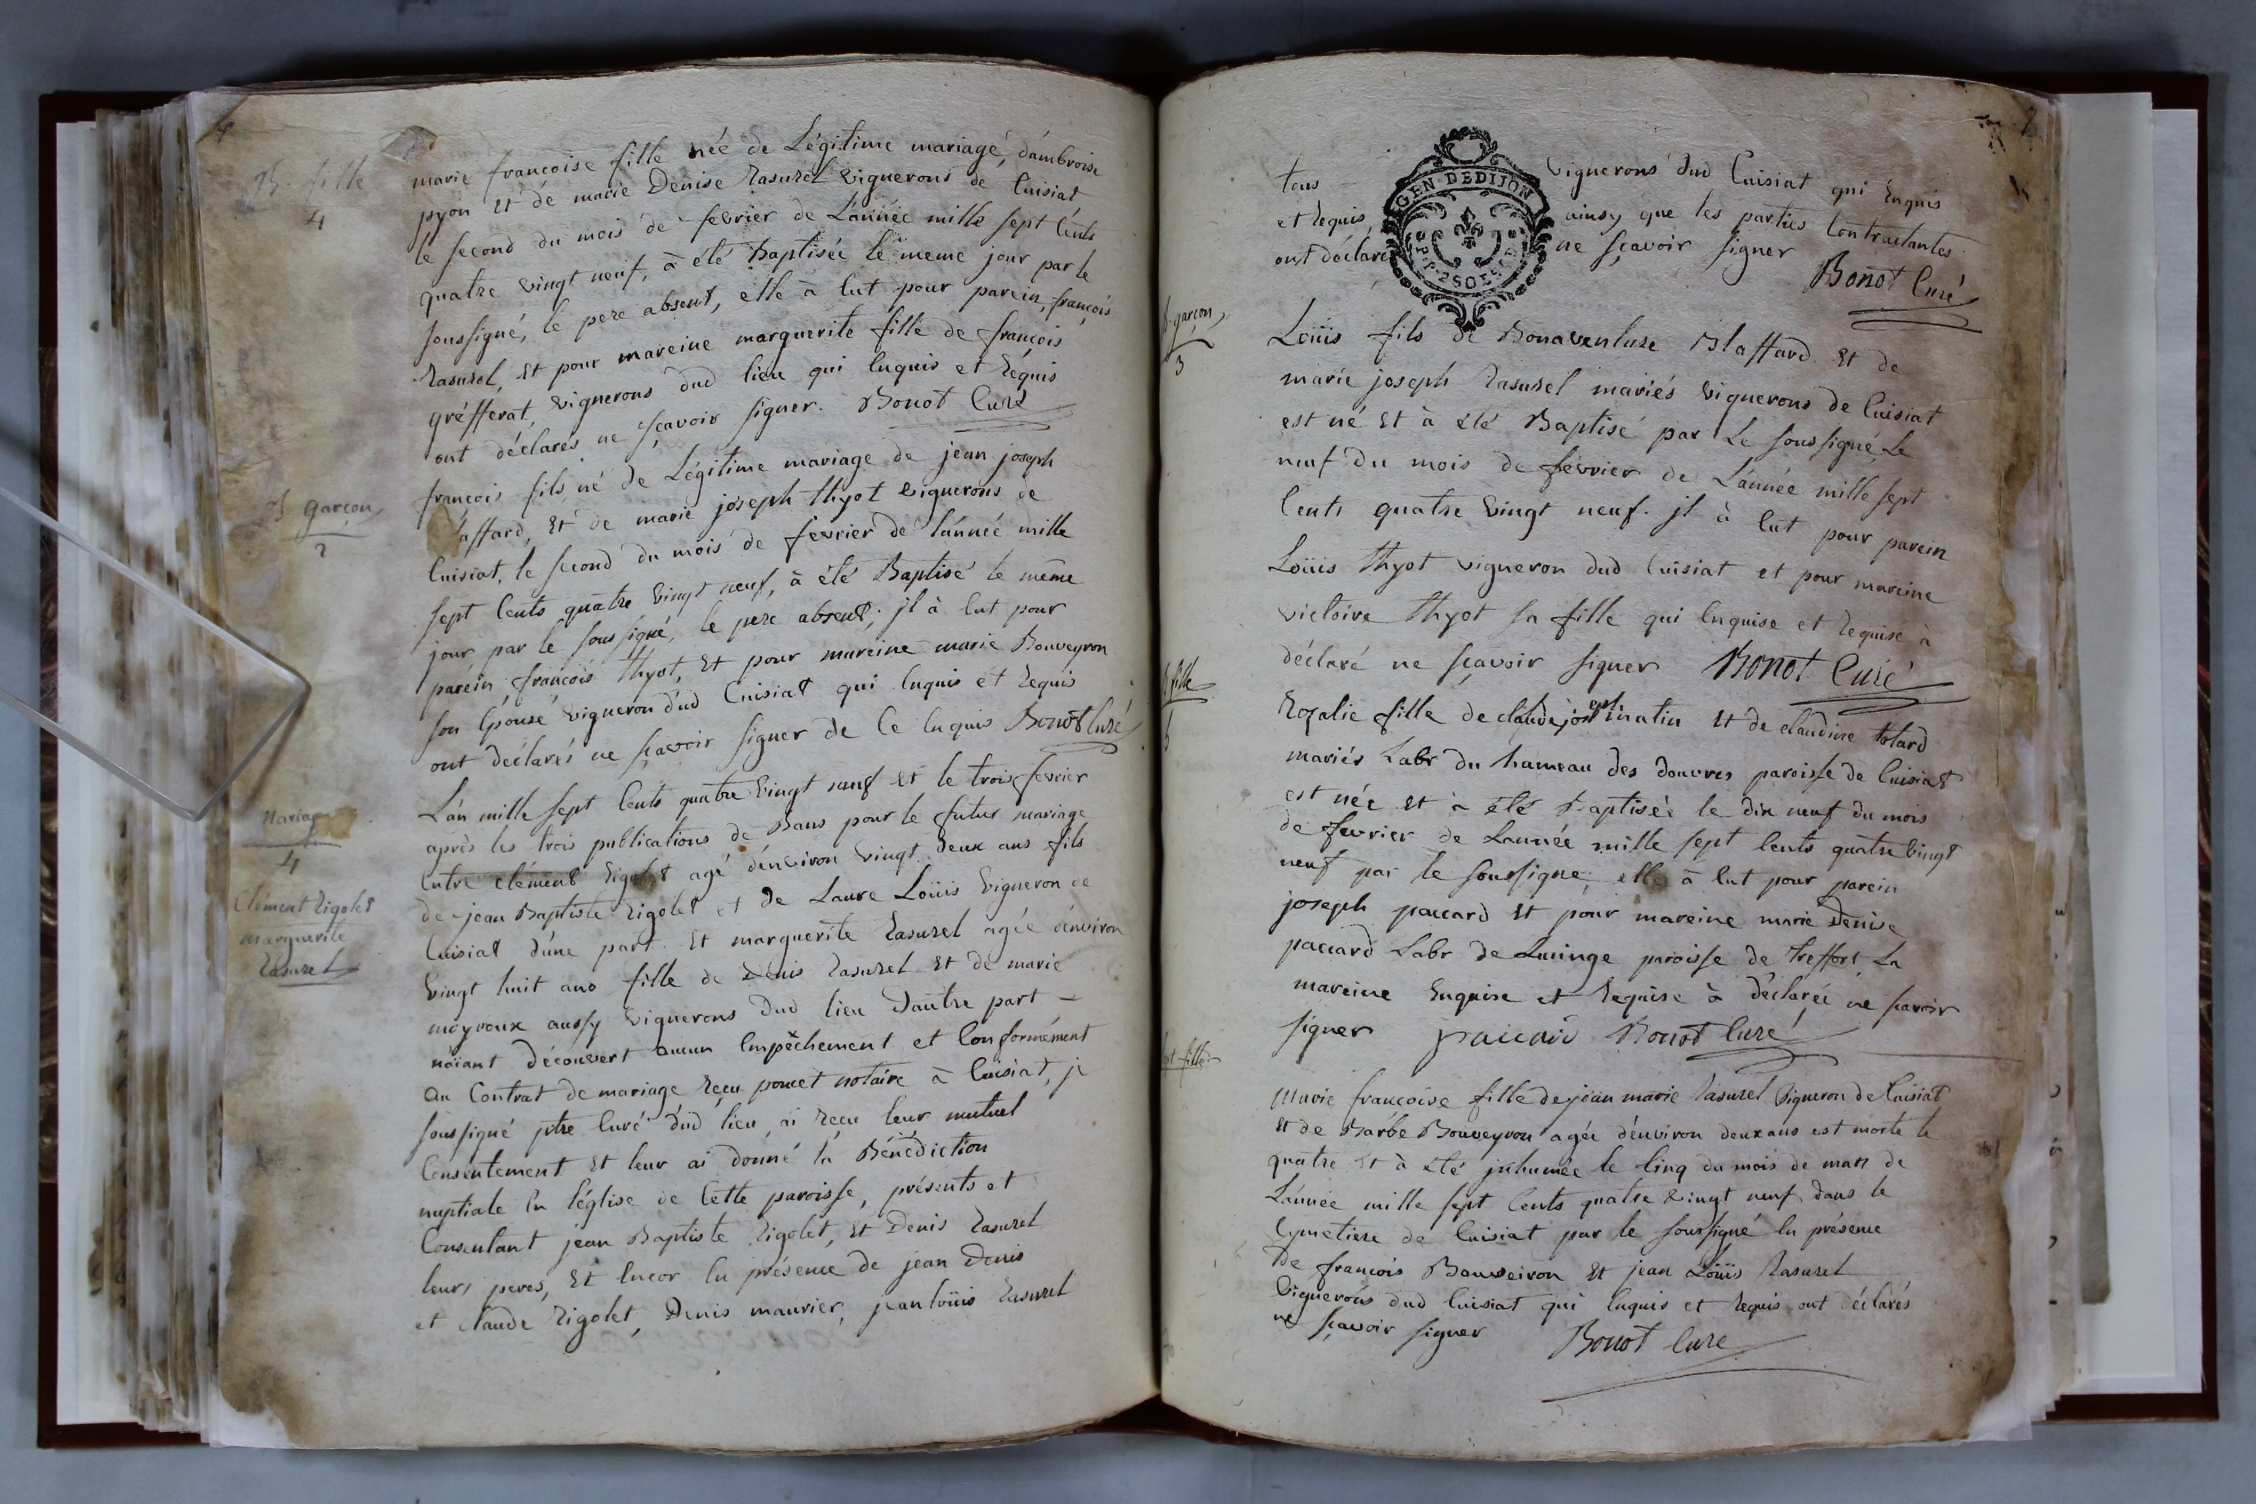 B. fille
4
marie francoise fille née de Légitime mariagé, d'ambroise
pyon et dé marie Denise Rasurel vignerons de Cuisiat
le second du mois de fevrier de L'année mille sept Cents
quatre vingt neuf, à été Baptisée le meme jour par le
soussigné, le pere absent, elle à Eut pour parein, francois
Rasurel, et pour mareine marguerite fille de francois
grèfferat, vignerons dud lieu qui Enquis et Réquis
ont déclarés ne sçavoir signer. Bonot Curé
B garçon
2
francois fils né de Légitime mariage de jean joseph
affard, Et de marie joseph thyot vignerons de
Cuisiat, le second du mois de fevrier de l'année mille
sept Cents quatre vingt neuf, à été Baptisé le même
jour par le soussigné, le pere absent; jl à Eut pour
paréin francois thyot, Et pour mareine marie Bouveyron
son Epouse vigneron dud Cuisiat qui Enquis et Requis
ont déclarés ne sçavoir signer de Ce Enquis Bonot Curé
Mariage
4
Clément Rigolet
marguerite
Rasurel
L'an mille sept Cents quatre vingt neuf et le trois fevrier
après les trois publications de Bans pour le futur mariage
Entre clément Rigolet agé d'environ vingt deux ans fils
de jean Baptiste Rigolet et de Laure Loüis vigneron de
Cuisiat d'une part. Et marguerite Rasurel agée d'environ
vingt huit ans fille de Denis Rasurel Et de marie
moyroux aussy vignerons dud lieu d'autre part –
n'aïant découvert aucun Empêchement et Conformément
au Contrat de mariage Reçu poncet notaire à Cuisiat, je
soussigné ptre Curé dud lieu, ai Reçu leur mutuel
Consentement Et leur ai donné la Bénédiction
nuptiale En l'église de Cette paroisse, présents et
Consentant jean Baptiste Rigolet, Et Denis Rasurel
leurs peres, Et Encor En présence de jean Denis
et claude Rigolet, Denis maurier, jean loüis Rasurel
tous vignerons dud Cuisiat qui Enquis
et Requis ainsy que les parties Contractantes
ont déclaré ne sçavoir signer
Bonot Curé
GEN. DE DIJON
B. garçon
3
Loüis fils de Bonaventure Blaffard Et de
marie joseph Rasurel mariés vignerons de Cuisiat
est né Et à été Baptisé par Le soussigné, Le
neuf du mois de février de L'année mille sept
Cents quatre vingt neuf. jl à Eut pour parein
Loüis thyot vigneron dud Cuisiat et pour mareine
victoire thyot sa fille qui Enquise et Requise à
déclaré ne sçavoir signer Bonot Curé
fille
Rozalie fille de claude jos Et de claudine
mariés Labr du hameau des douvres paroisse de Cuisiat
est née et à été Baptisée le dix neuf du mois
de fevrier de L'année mille sept Cents quatre vingt
neuf par le soussigné; elle à Eut pour parein
joseph paccard Et pour mareine marie Denise
paccard Labr de Lucinge paroisse de treffort La
mareine Enquise et Requise à déclarée ne sçavoir
signer paccard Bonot Curé
fille
Marie françoise fille de jean marie Rasurel vigneron de Cuisiat
Et de Barbe Bouveyron agée d'environ deux ans est morte le
quatre Et à été jnhumée le Cinq du mois de mars de
L'année mille sept Cents quatre vingt neuf dans le
Cymetiere de Cuisiat par le soussigné En présence
De francois Bouveiron Et jean Loüis Rasurel
vignerons dud Cuisiat qui Enquis et Requis ont déclarés
ne sçavoir signer Bonot Curé